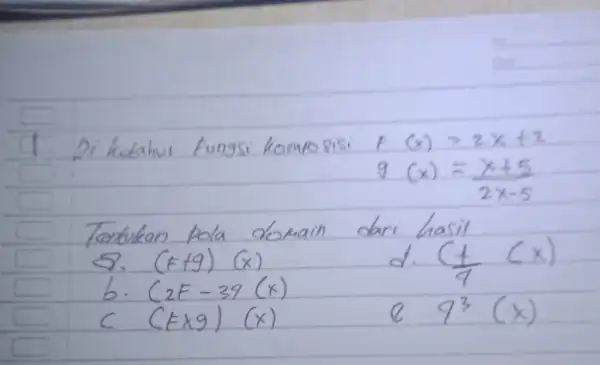 1 Di ketahui fungsi komposisi F (x) = 2x + 2
g (x) = x+5
2x-5
Tentukan pola domain dari hasil
a. (F+g) (x) d. (f/g (x)
b. (2F - 3g (x)
c (F×g) (x) e g³ (x)